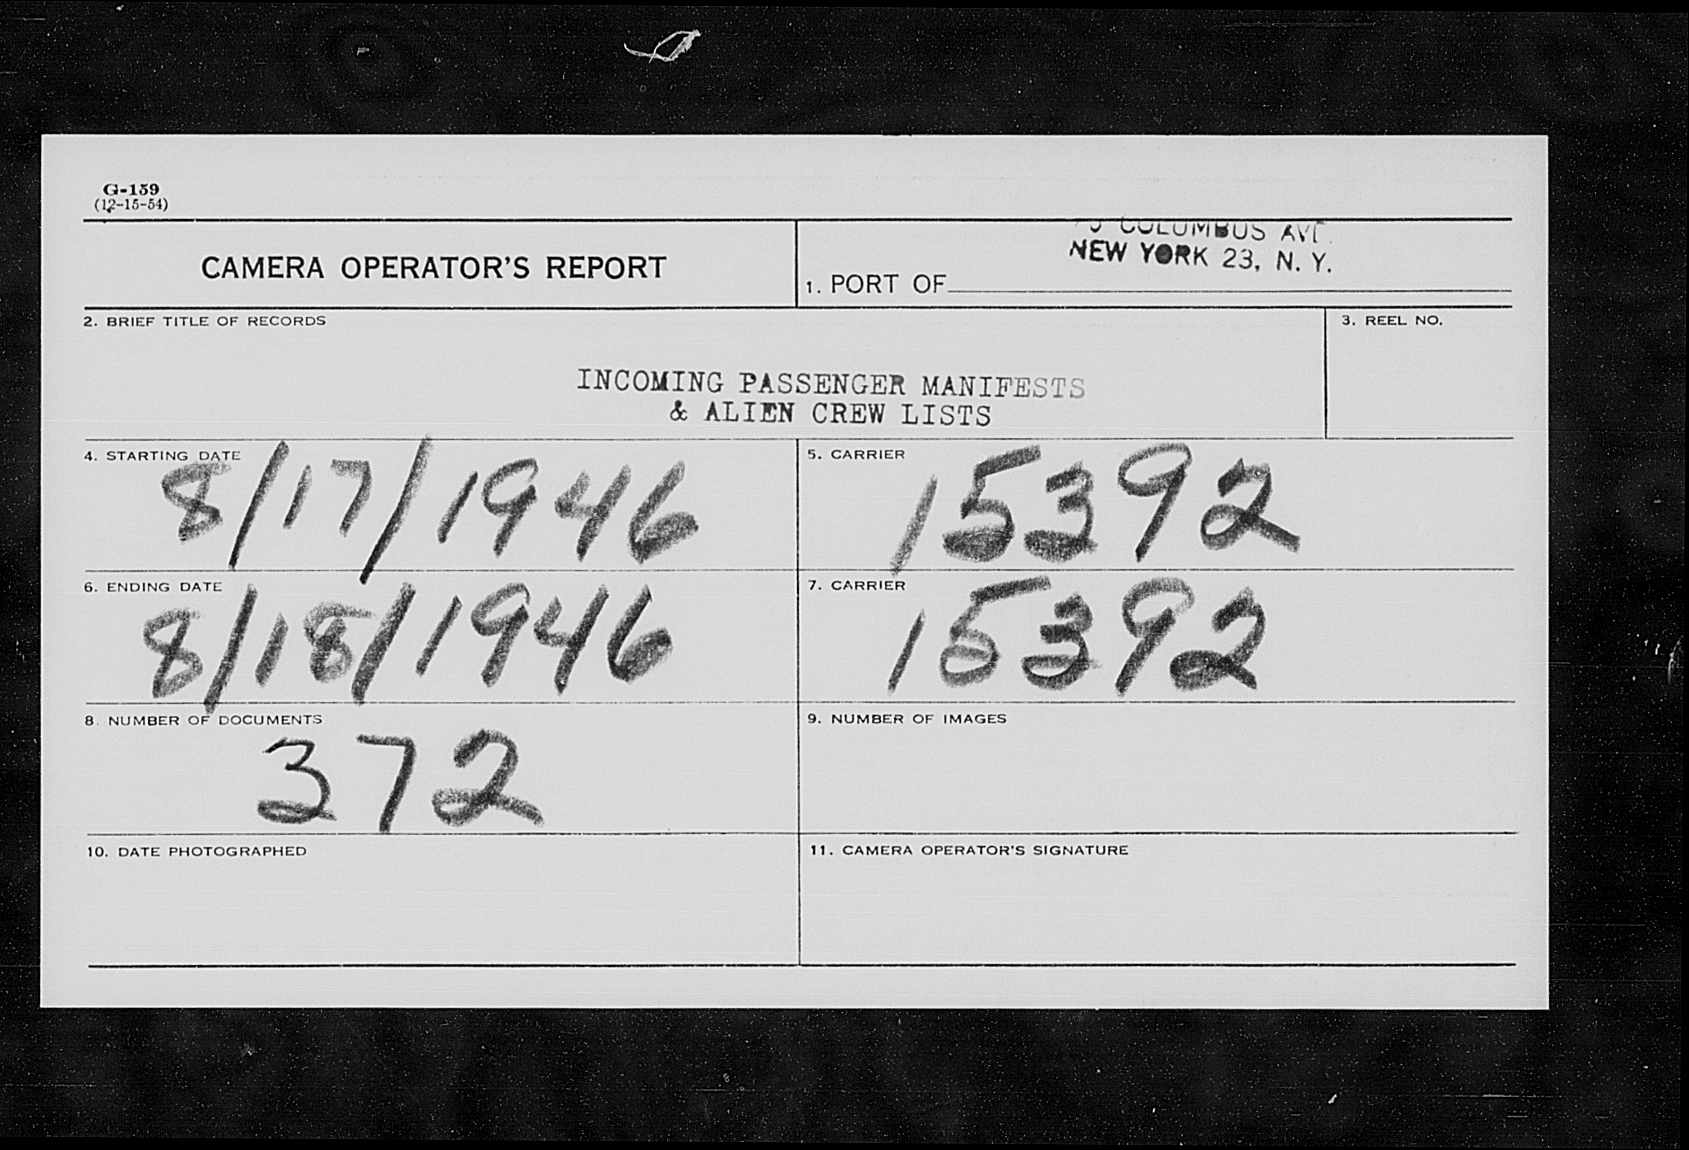 G-159
(12-15-54)
CAMERA OPERATOR'S REPORT
COLUMBUS AVE.
NEW YORK 23, N. Y.
1. PORT OF
2. BRIEF TITLE OF RECORDS
3. REEL NO.
INCOMING PASSENGER MANIFESTS
& ALIEN CREW LISTS
4. STARTING DATE
8/17/1946
5. CARRIER
15392
6. ENDING DATE
8/18/1946
7. CARRIER
15392
8. NUMBER OF DOCUMENTS
372
9. NUMBER OF IMAGES
10. DATE PHOTOGRAPHED
11. CAMERA OPERATOR'S SIGNATURE